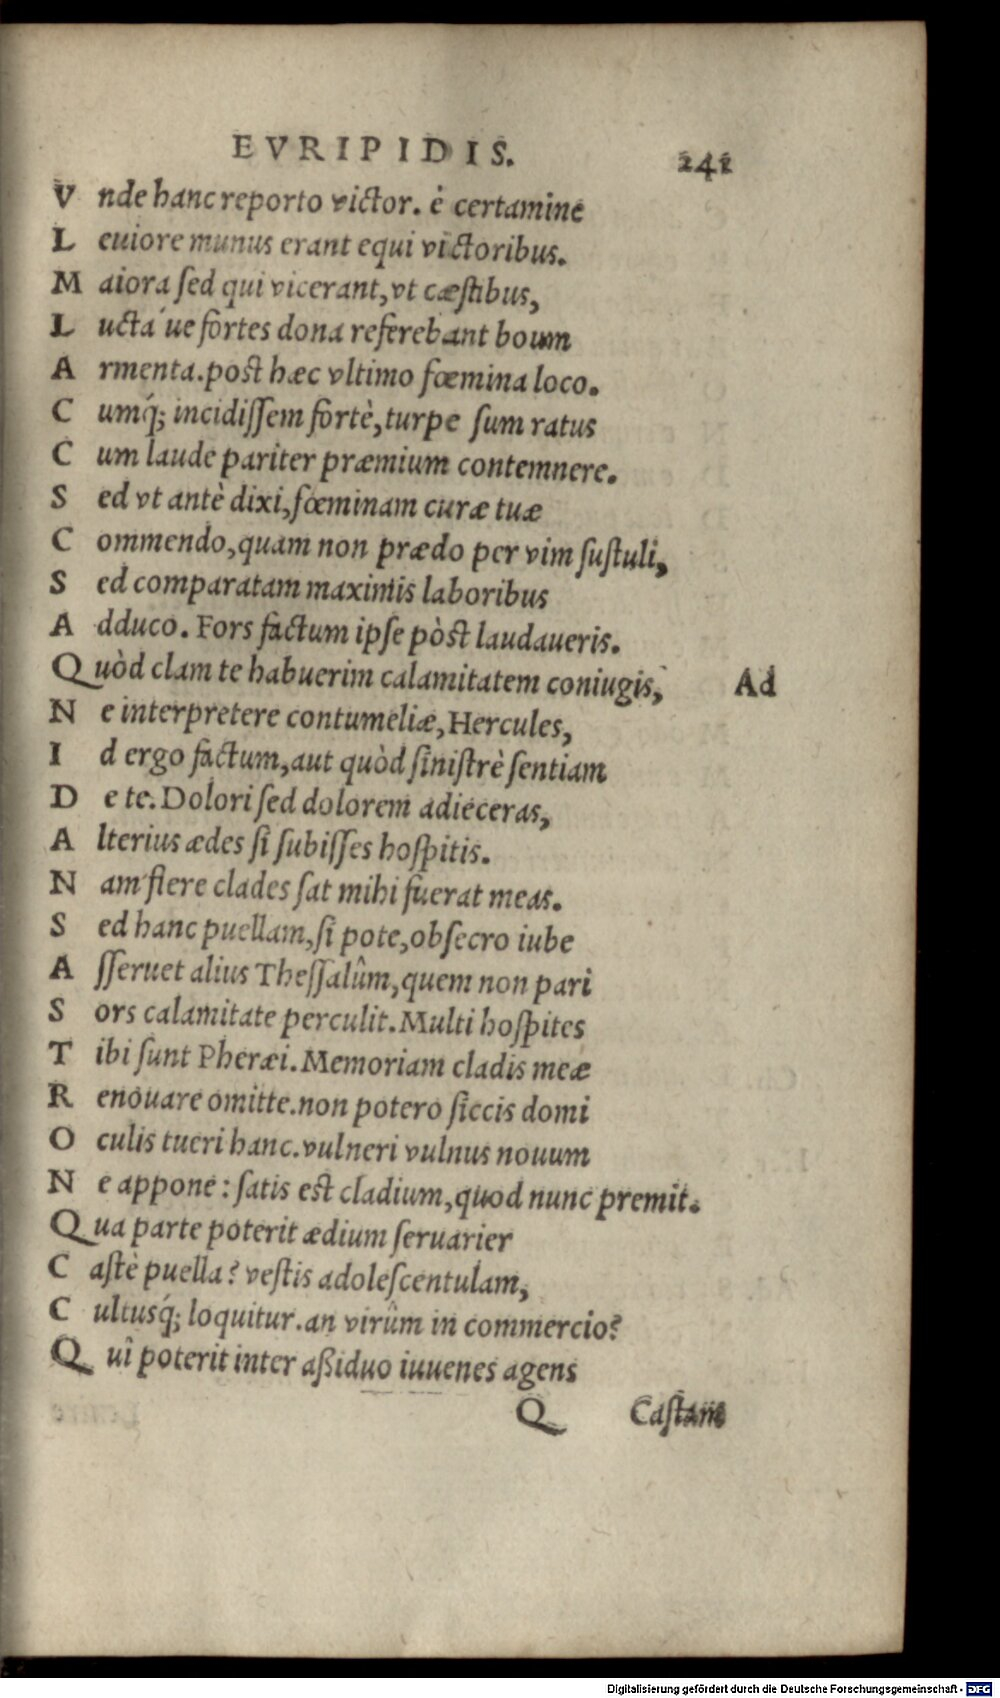 EVRIPIDIS. 241
Vnde hanc reporto victor. è certamine
Leuiore munus erant equi victoribus.
Maiora sed qui vicerant, vt cæstibus,
Luctá ue fortes dona referebant boum
Armenta. post hæc vltimo fœmina loco.
Cumq́; incidissem fortè, turpe sum ratus
Cum laude pariter præmium contemnere.
Sed vt antè dixi, fœminam curæ tuæ
Commendo, quam non prædo per vim sustuli,
Sed comparatam maximis laboribus
Adduco. Fors factum ipse pòst laudaueris.
Quòd clam te habuerim calamitatem coniugis, Ad
Ne interpretere contumeliæ, Hercules,
Id ergo factum, aut quòd sinistrè sentiam
De te. Dolori sed dolorem adieceras,
Alterius ædes si subisses hospitis.
Nam flere clades sat mihi fuerat meas.
Sed hanc puellam, si pote, obsecro iube
Asseruet alius Thessalûm, quem non pari
Sors calamitate perculit. Multi hospites
Tibi sunt Pheræi. Memoriam cladis meæ
Renouare omitte. non potero siccis domi
Oculis tueri hanc. vulneri vulnus nouum
Ne appone: satis est cladium, quod nunc premit.
Qua parte poterit ædium seruarier
Castè puella? vestis adolescentulam,
Cultusq́; loquitur. an virûm in commercio?
Quî poterit inter aßiduo iuuenes agens
Q Castam
Digitalisierung gefördert durch die Deutsche Forschungsgemeinschaft - DFG